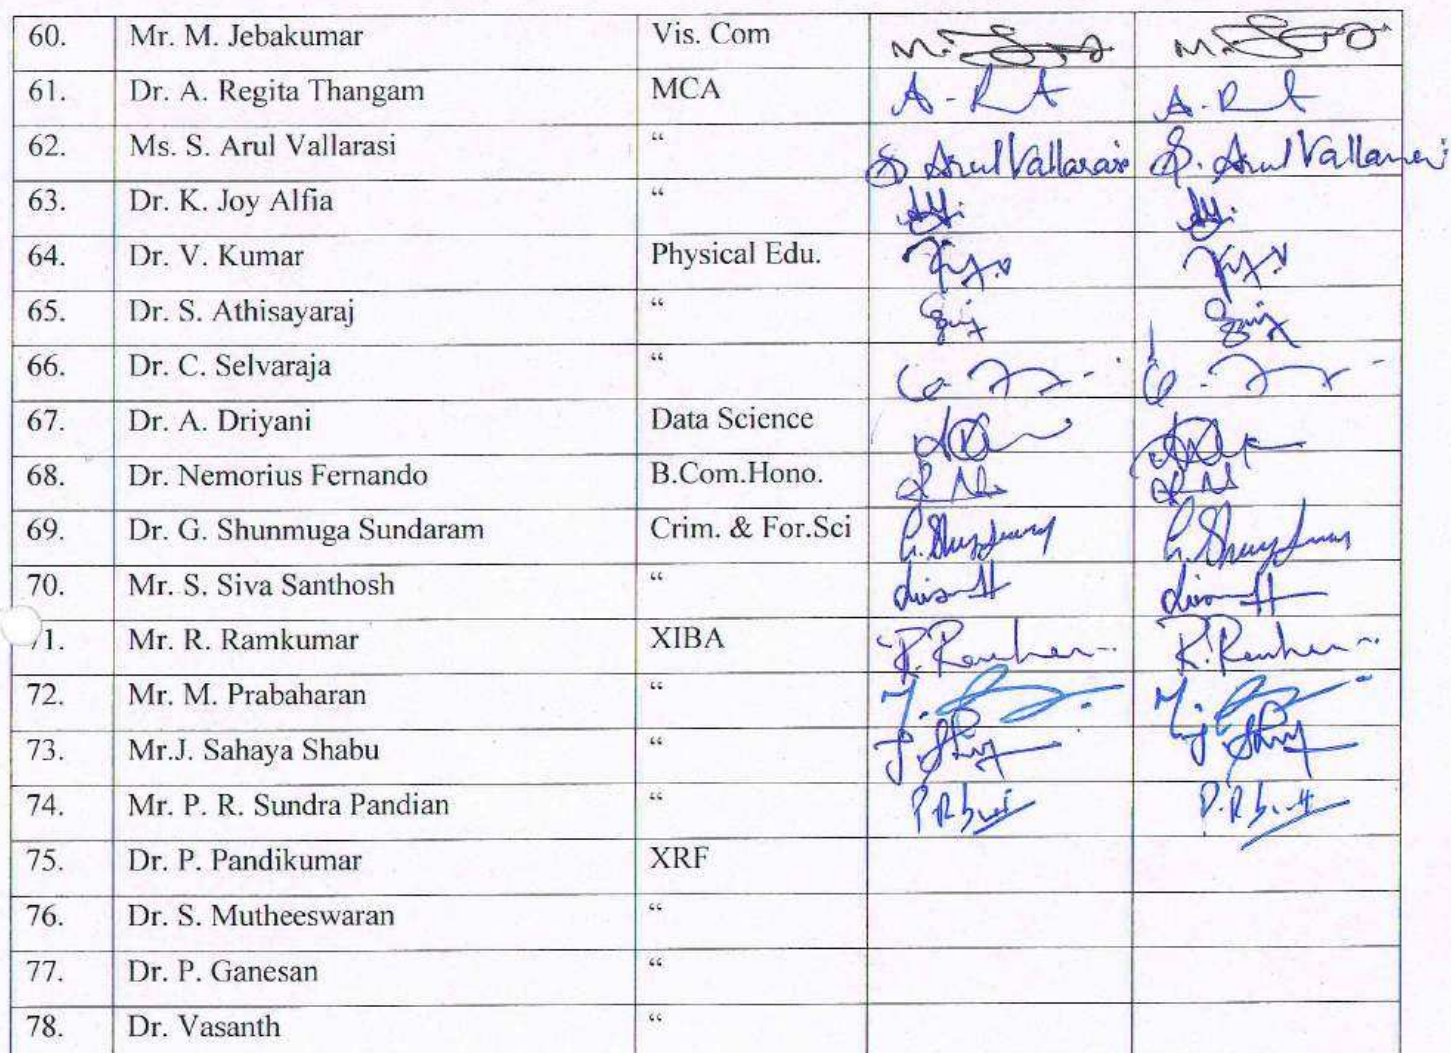 60. Mr. M. Jebakumar Vis. Com
61. Dr. A. Regita Thangam MCA A. R
62. Ms. S. Arul Vallarasi “ S. Arul Vallarasi S. Arul Vallarasi
63. Dr. K. Joy Alfia “
64. Dr. V. Kumar Physical Edu.
65. Dr. S. Athisayaraj “
66. Dr. C. Selvaraja “
67. Dr. A. Driyani Data Science
68. Dr. Nemorius Fernando B.Com.Hono.
69. Dr. G. Shunmuga Sundaram Crim. & For.Sci
70. Mr. S. Siva Santhosh “
71. Mr. R. Ramkumar XIBA
72. Mr. M. Prabaharan “
73. Mr.J. Sahaya Shabu “
74. Mr. P. R. Sundra Pandian “
75. Dr. P. Pandikumar XRF
76. Dr. S. Mutheeswaran “
77. Dr. P. Ganesan “
78. Dr. Vasanth “